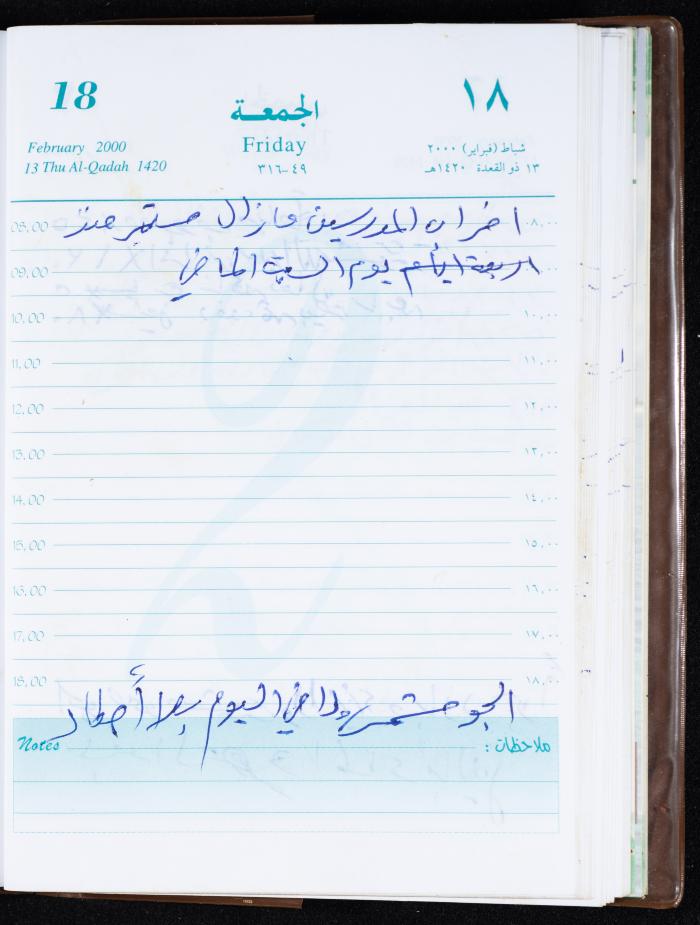 18
١٨
الجمعة
Friday
February 2000
13 Thu Al-Qadah 1420
٣١٦-٤٩
شباط (فبراير) ٢٠٠٠
١٣ ذو القعدة ١٤٢٠هـ
08.00 اضراب المدرسين مازال مستمر منذ ٠٨,٠٠
09.00 اربعة ايام يوم السبت الماضي
10.00 ١٠,٠٠
11.00 ١١,٠٠
12.00 ١٢,٠٠
13.00 ١٣,٠٠
14.00 ١٤,٠٠
15.00 ١٥,٠٠
16.00 ١٦,٠٠
17.00 ١٧,٠٠
18.00 ١٨,٠٠
الجو مشمس ودافئ اليوم بلا أمطار
Notes ملاحظات :